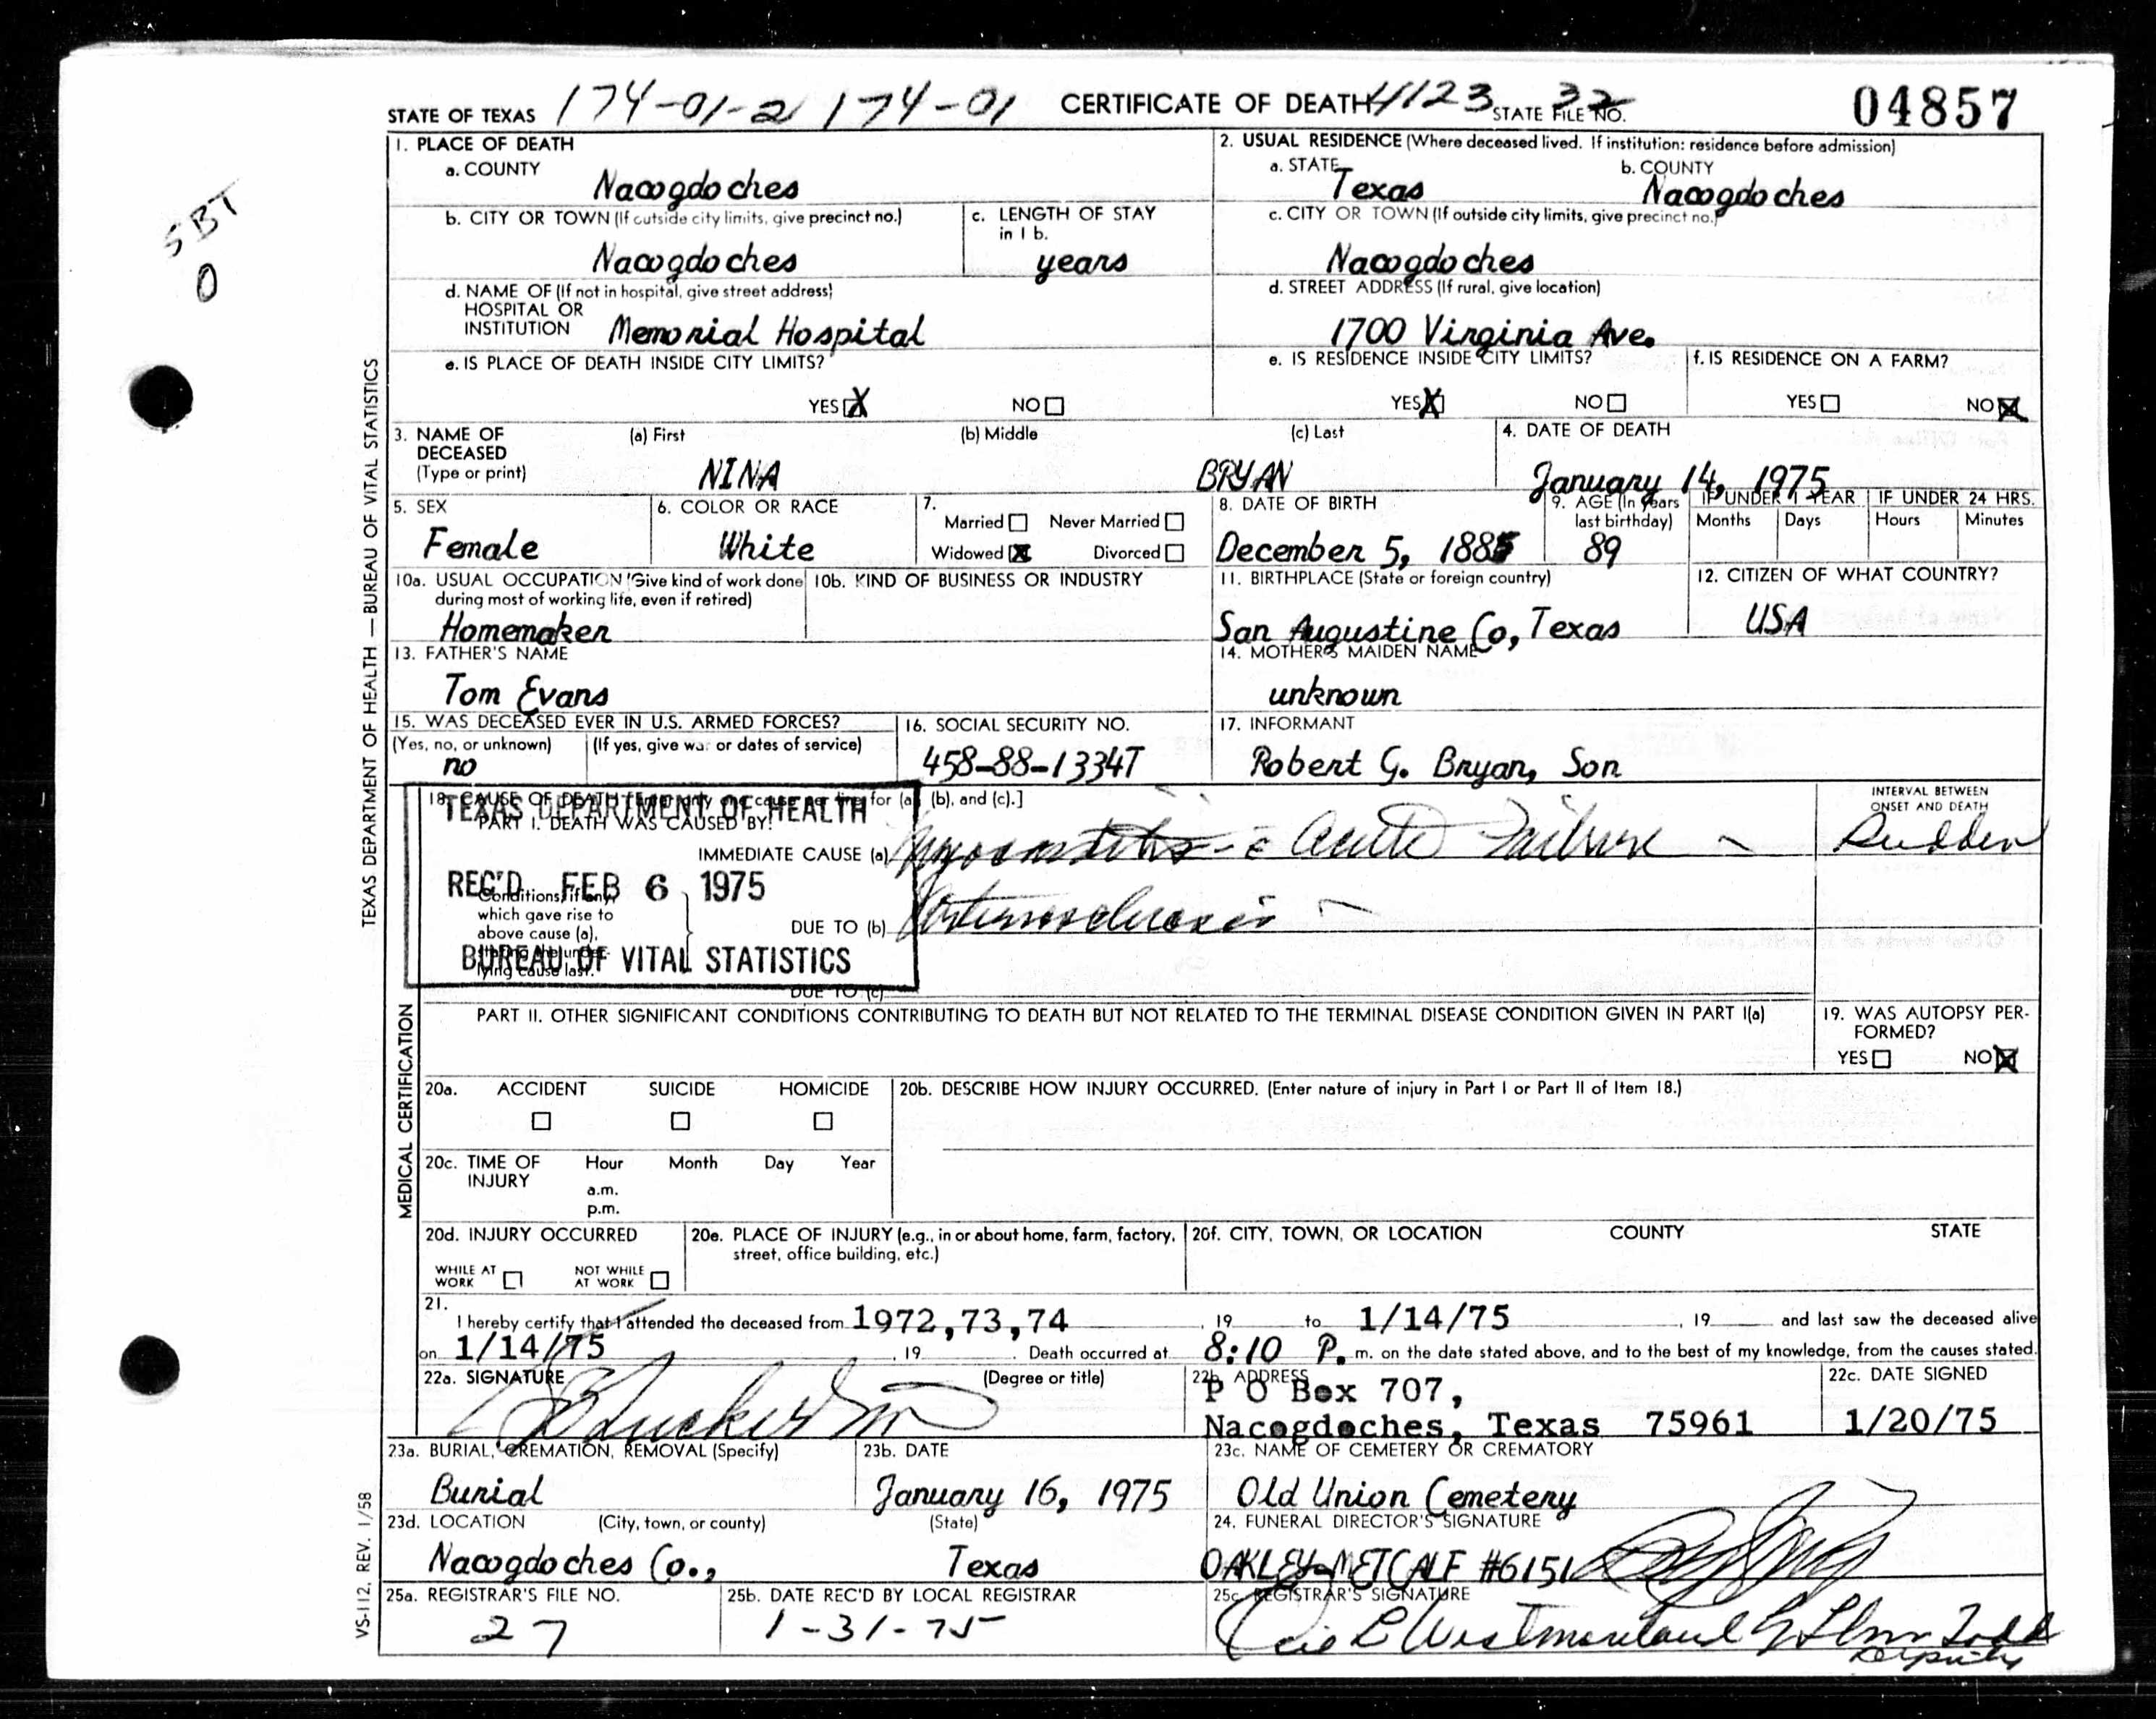 STATE OF TEXAS 174-01-2 174-01 CERTIFICATE OF DEATH 4123 STATE FILE NO. 32 04857
SBT
0
TEXAS DEPARTMENT OF HEALTH — BUREAU OF VITAL STATISTICS
1. PLACE OF DEATH
a. COUNTY
Nacogdoches
2. USUAL RESIDENCE (Where deceased lived. If institution: residence before admission)
a. STATE b. COUNTY
Texas Nacogdoches
b. CITY OR TOWN (If outside city limits, give precinct no.)
Nacogdoches
c. LENGTH OF STAY
in 1 b.
years
c. CITY OR TOWN (If outside city limits, give precinct no.)
Nacogdoches
d. NAME OF (If not in hospital, give street address)
HOSPITAL OR
INSTITUTION Memorial Hospital
d. STREET ADDRESS (If rural, give location)
1700 Virginia Ave.
e. IS PLACE OF DEATH INSIDE CITY LIMITS?
YES X NO
e. IS RESIDENCE INSIDE CITY LIMITS?
YES X NO
f. IS RESIDENCE ON A FARM?
YES NO X
3. NAME OF
DECEASED
(Type or print)
(a) First (b) Middle (c) Last
NINA BRYAN
4. DATE OF DEATH
January 14, 1975
5. SEX
Female
6. COLOR OR RACE
White
7.
Married Never Married
Widowed X Divorced
8. DATE OF BIRTH
December 5, 1885
9. AGE (In years
last birthday)
89
IF UNDER 1 YEAR IF UNDER 24 HRS.
Months Days Hours Minutes
10a. USUAL OCCUPATION (Give kind of work done
during most of working life, even if retired)
Homemaker
10b. KIND OF BUSINESS OR INDUSTRY
11. BIRTHPLACE (State or foreign country)
San Augustine Co, Texas
12. CITIZEN OF WHAT COUNTRY?
USA
13. FATHER'S NAME
Tom Evans
14. MOTHER'S MAIDEN NAME
unknown
15. WAS DECEASED EVER IN U.S. ARMED FORCES?
(Yes, no, or unknown) (If yes, give war or dates of service)
no
16. SOCIAL SECURITY NO.
458-88-1334T
17. INFORMANT
Robert G. Bryan, Son
MEDICAL CERTIFICATION
18. CAUSE OF DEATH [Enter only one cause per line for (a), (b), and (c).]
PART I. DEATH WAS CAUSED BY:
IMMEDIATE CAUSE (a) Acute Failure
INTERVAL BETWEEN
ONSET AND DEATH
Sudden
TEXAS DEPARTMENT OF HEALTH
REC'D FEB 6 1975
BUREAU OF VITAL STATISTICS
Conditions, if any,
which gave rise to
above cause (a),
stating the under-
lying cause last.
DUE TO (b) Arteriosclerosis
DUE TO (c)
PART II. OTHER SIGNIFICANT CONDITIONS CONTRIBUTING TO DEATH BUT NOT RELATED TO THE TERMINAL DISEASE CONDITION GIVEN IN PART I(a)
19. WAS AUTOPSY PER-
FORMED?
YES NO X
20a. ACCIDENT SUICIDE HOMICIDE
20b. DESCRIBE HOW INJURY OCCURRED. (Enter nature of injury in Part I or Part II of Item 18.)
20c. TIME OF
INJURY
Hour Month Day Year
a.m.
p.m.
20d. INJURY OCCURRED
WHILE AT
WORK
NOT WHILE
AT WORK
20e. PLACE OF INJURY (e.g., in or about home, farm, factory,
street, office building, etc.)
20f. CITY, TOWN, OR LOCATION COUNTY STATE
21.
I hereby certify that I attended the deceased from 1972,73,74, 19 to 1/14/75, 19 and last saw the deceased alive
on 1/14/75, 19. Death occurred at 8:10 P. m. on the date stated above, and to the best of my knowledge, from the causes stated.
22a. SIGNATURE (Degree or title)
22b. ADDRESS
P O Box 707,
Nacogdoches, Texas 75961
22c. DATE SIGNED
1/20/75
23a. BURIAL, CREMATION, REMOVAL (Specify)
Burial
23b. DATE
January 16, 1975
23c. NAME OF CEMETERY OR CREMATORY
Old Union Cemetery
23d. LOCATION (City, town, or county) (State)
Nacogdoches Co., Texas
24. FUNERAL DIRECTOR'S SIGNATURE
OAKLEY-METCALF #6151
25a. REGISTRAR'S FILE NO.
27
25b. DATE REC'D BY LOCAL REGISTRAR
1-31-75
25c. REGISTRAR'S SIGNATURE
Westmoreland Todd
Deputy
VS-112, REV. 1/58